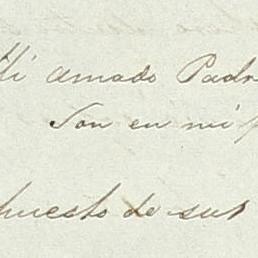 Mi amado Padr
Son en mi p
puesto de sus